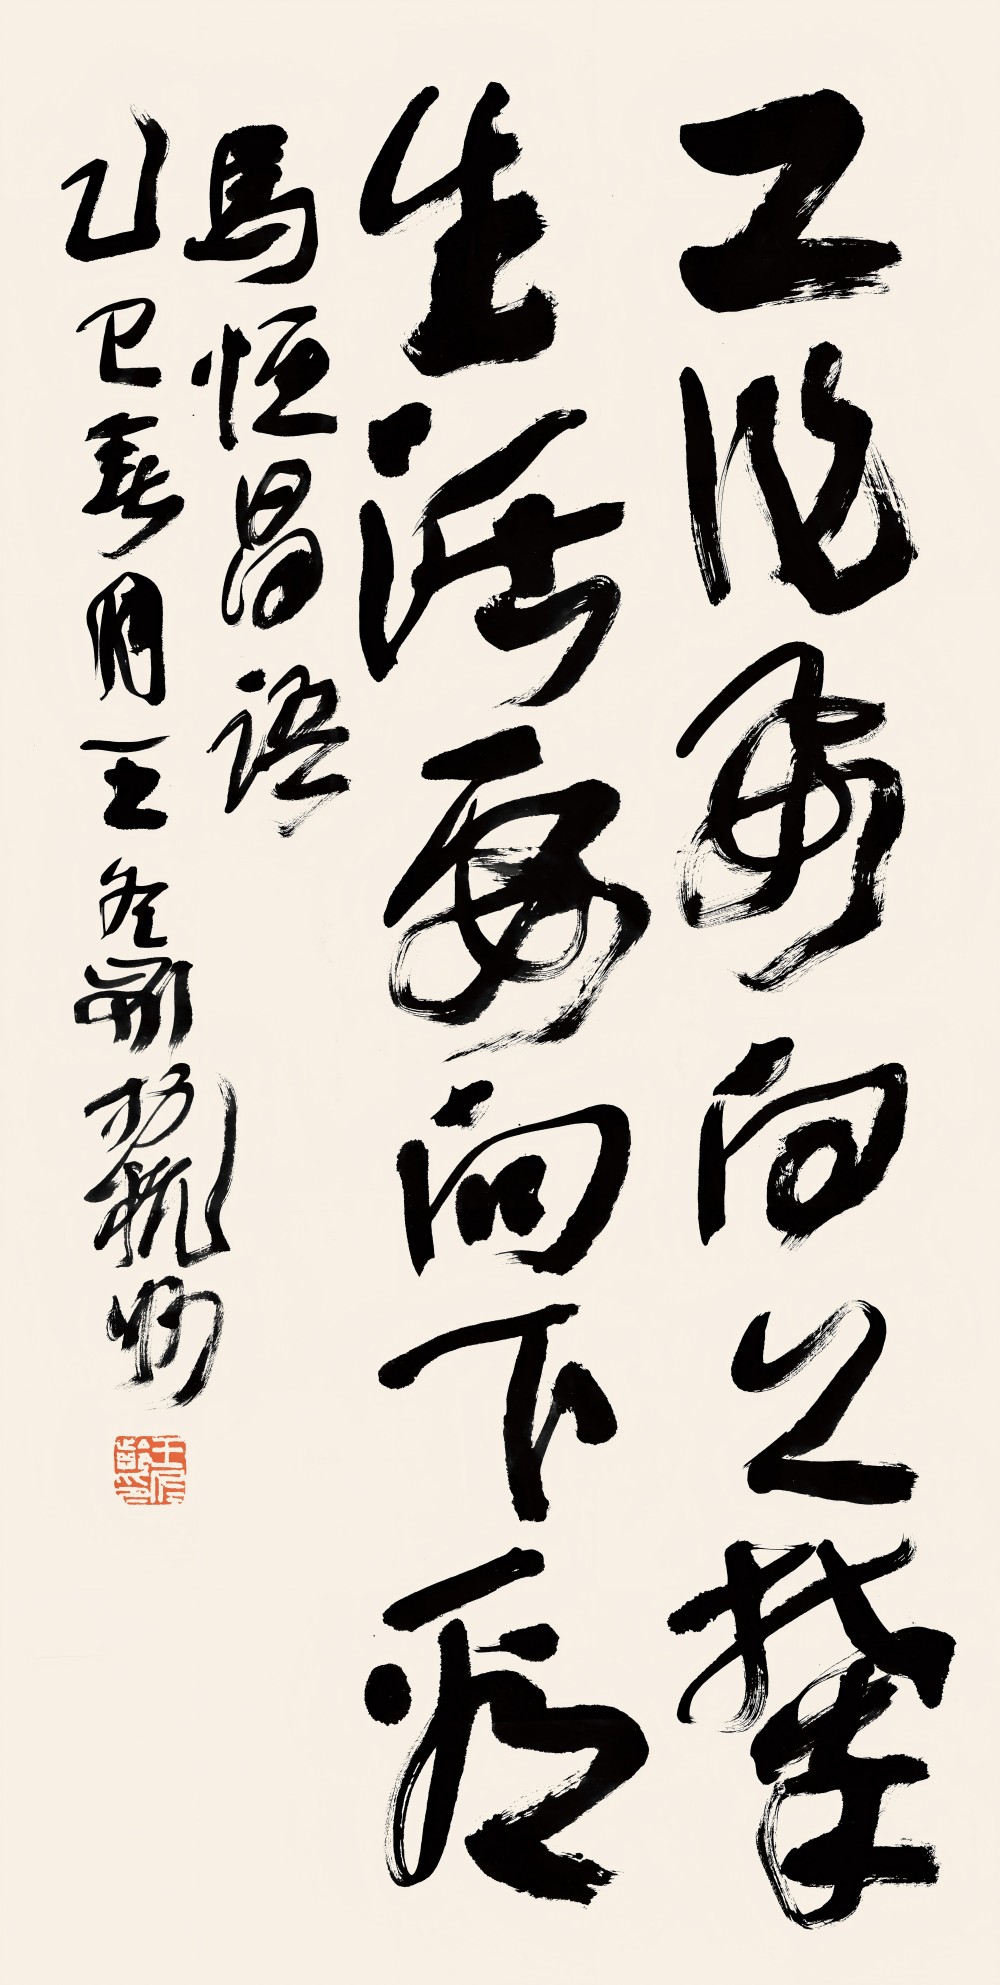 工作要向上攀
生活要向下看
馬恒昌語
乙巳春月王冬齡於杭州
王冬齡印